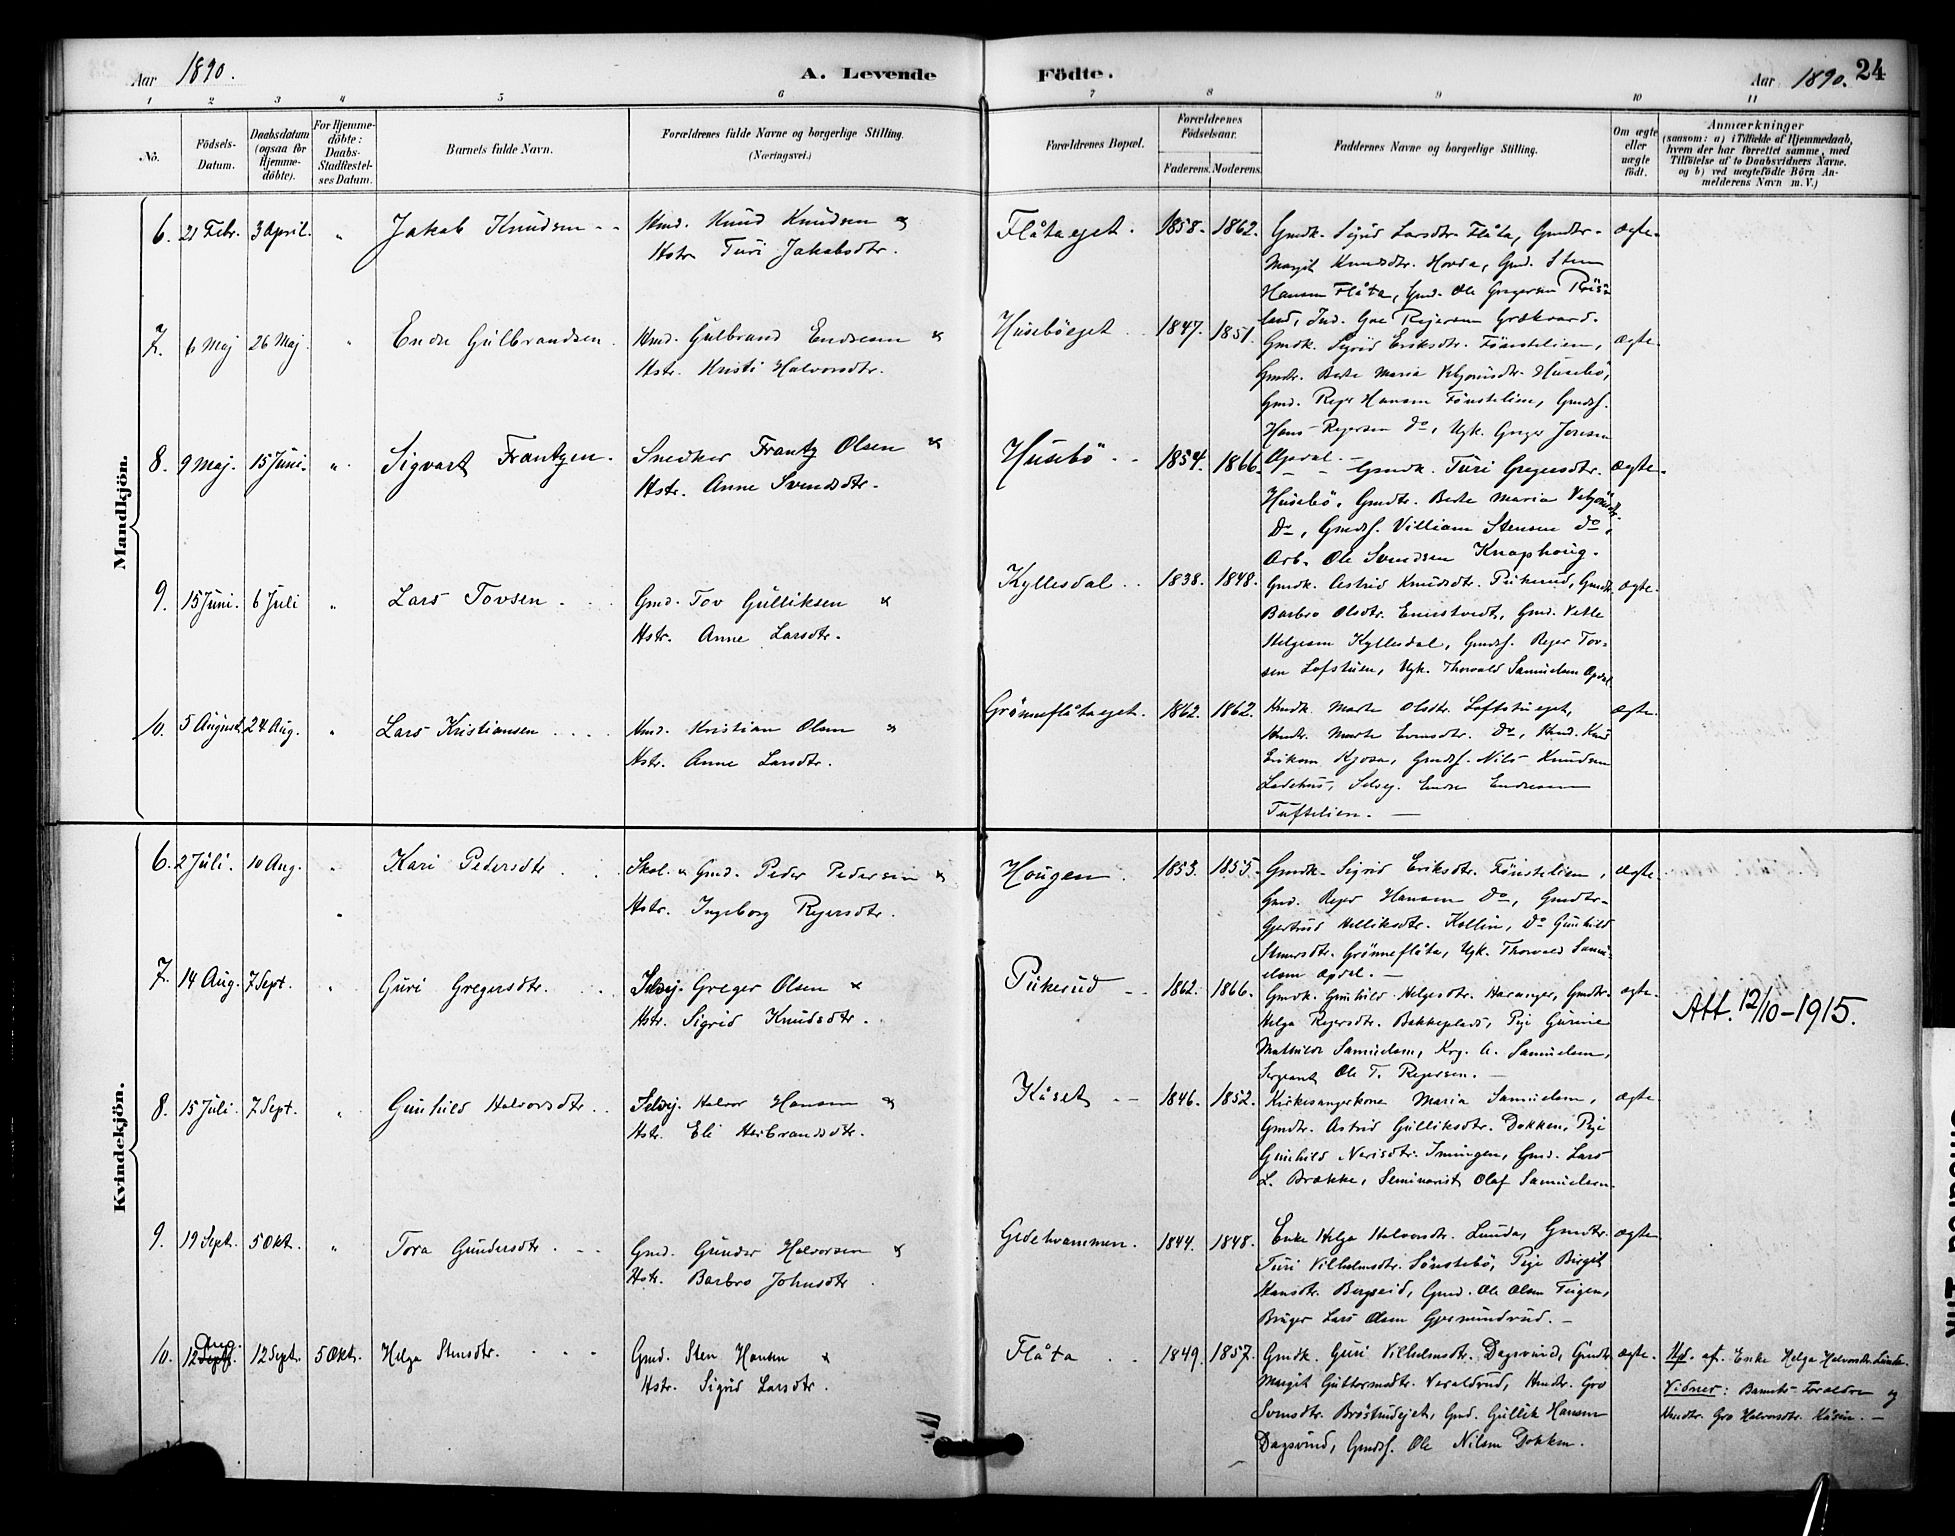 Aar 1890.
A. Levende Födte.
Aar 1890. 24
1 2 3 4 5 6 7 8 9 10 11
No.
Födsels-Datum.
Daabsdatum (ogsaa for Hjemme-döbte).
For Hjemme-döbte: Daabs-Stadfæstel-ses Datum.
Barnets fulde Navn.
Forældrenes fulde Navne og borgerlige Stilling. (Næringsvei.)
Forældrenes Bopæl.
Forældrenes Födselsaar.
Faderens. Moderens.
Faddernes Navne og borgerlige Stilling.
Om ægte eller uægte födt.
Anmærkninger (saasom: a) i Tilfælde af Hjemmedaab, hvem der har forrettet samme, med Tilföielse af to Daabsvidners Navne, og b) ved uægtefödte Börn An-melderens Navn m. V.)
Mandkjön.
6. 21 Febr. 3 April. " Jakob Knudsen -- Kmd. Knud Knudsen &
Hstr. Turi Jakobsdtr.
Flåtaeget. 1858. 1862. Gmdk. Sigrid Larsdtr. Flåta, Gmdtr. ægte.
Margit Knudsdtr. Hovda, Gmd. Sten
Hansen Flåta, Gmd. Ole Gregersen Röis
land, Ind. Reiersen
7. 6 Maj 26 Maj. " Endre Gulbrandsen. Kmd. Gulbrand Endresen &
Hstr. Kristi Halvorsdtr.
Huseböeget. 1847. 1851. Gmdk. Sigrid Eriksdtr. Fönstelien, ægte.
Gmdtr. Berte Maria Vebjörnsdtr. Husebö,
Gmd. Rejer Hansen Fönstelien, Gmdsf.
Hans Rejersen Do, Ugk. Greger Jonsen
Opdal. -
8. 9 Maj. 15 Juni. " Sigvart Frantzen. Snedker Frantz Olsen &
Hstr. Anne Svendsdtr.
Husebö -- 1854. 1866. Gmdk. Turi Gregersdtr. ægte.
Husebö, Gmdtr. Berte Maria Vebjörnsdtr.
Do, Gmdsf. Villiam Stensen do,
Arb. Ole Svendsen Knaphoug.
9. 15 Juni. 6 Juli " Lars Tovsen. Gmd. Tov Gulliksen &
Hstr. Anne Larsdtr.
Kyllesdal -- 1838. 1848. Gmdk. Astrid Knudsdtr. Pukerud, Gmdtr. ægte.
Barbro Olsdtr. Enerstvedt, Gmd. Vetle
Helgesen Kyllesdal, Gmdsf. Rejer Tov-
sen Lofstuen, Ugk. Thorvald Samuelsen Opdal
10. 5 August. 24 Aug. " Lars Kristiansen .... Kmd. Kristian Olsen &
Hstr. Anne Larsdtr.
Grönneflåtaeget. 1862. 1862. Kmdk. Marte Olsdtr. Loftstueget, ægte.
Kmdtr. Marte Evensdtr. Do, Kmd. Knud
Eriksen Kjosa, Gmdsf. Nils Knudsen
Ladehus, Selvej. Endre Endresen
Tuftelien. -
Kvindekjön.
6. 2 Juli. 10 Aug. " Kari Pedersdtr. Skol. & Gmd. Peder Pedersen &
Hstr. Ingeborg Rejersdtr.
Hougen. 1853. 1855. Gmdk. Sigrid Eriksdtr. Fönstelien, ægte.
Gmd. Rejer Hansen Do, Gmdtr.
Gjertrud Helliksdtr. Kollin, Do Gunhild
Grönneflåta, Ugk. Thorvald Samu-
elsen Opdal. -
7. 14 Aug. 7 Sept. " Guri Gregersdtr. Selvej. Greger Olsen &
Hstr. Sigrid Knudsdtr.
Pukerud -- 1862. 1866. Gmdk. Gunhild Helgesdtr. Gmdtr. ægte.
Helga Rejersdtr. Bakkeplads, Pige Gurine
Mathilde Samuelsen, Krg. A. Samuelsen,
Sergeant Ole T. Rejersen. -
Att. 12/10-1915.
8. 15 Juli. 7 Sept. " Gunhild Halvorsdtr. Selvej. Halvor Hansen &
Hstr. Eli Herbrandsdtr.
Kåset -- 1846. 1852. Kirkesangerkone Maria Samuelsen, ægte.
Gmdtr. Astrid Gulliksdtr. Dokken, Pige
Gunhild Narisdtr. Imingen, Gmd. Lars
L. Brække, Seminarist Olaf Samuelsen.
9. 19 Sept. 5 Okt. " Tora Gundersdtr. Gmd. Gunder Halvorsen &
Hstr. Barbro Johnsdtr
Gedehvammen. 1844. 1848. Enke Helga Halvorsdtr. Lunda, Gmdtr. ægte
Turi Vilhelmsdtr. Sönstebö, Pige Birgit
Hansdtr. Bergseid, Gmd. Ole Olsen Teigen,
Bruger Lars Olsen Gjermundrud. -
10. 12 Aug. 12 Sept. 5 Okt. Helga Stensdtr. Gmd. Sten Hansen &
Hstr. Sigrid Larsdtr.
Flåta 1849. 1857. Gmdk. Guri Vilhelmsdtr. Dagsvind, Gmdtr ægte.
Margit Guttormsdtr. Veraldrud, Kmdtr. Gro
Svensdtr. Bröstrudejet, Gmd. Gullik Hansen
Dagsvind, Gmdsf. Ole Nilsen Dokken.
Hd. af. Enke Helga Halvorsdtr. Lunde.
Vidner: Barnets Forældre og
Kmdtr. Gro Halvorsdtr. Kåsen. -